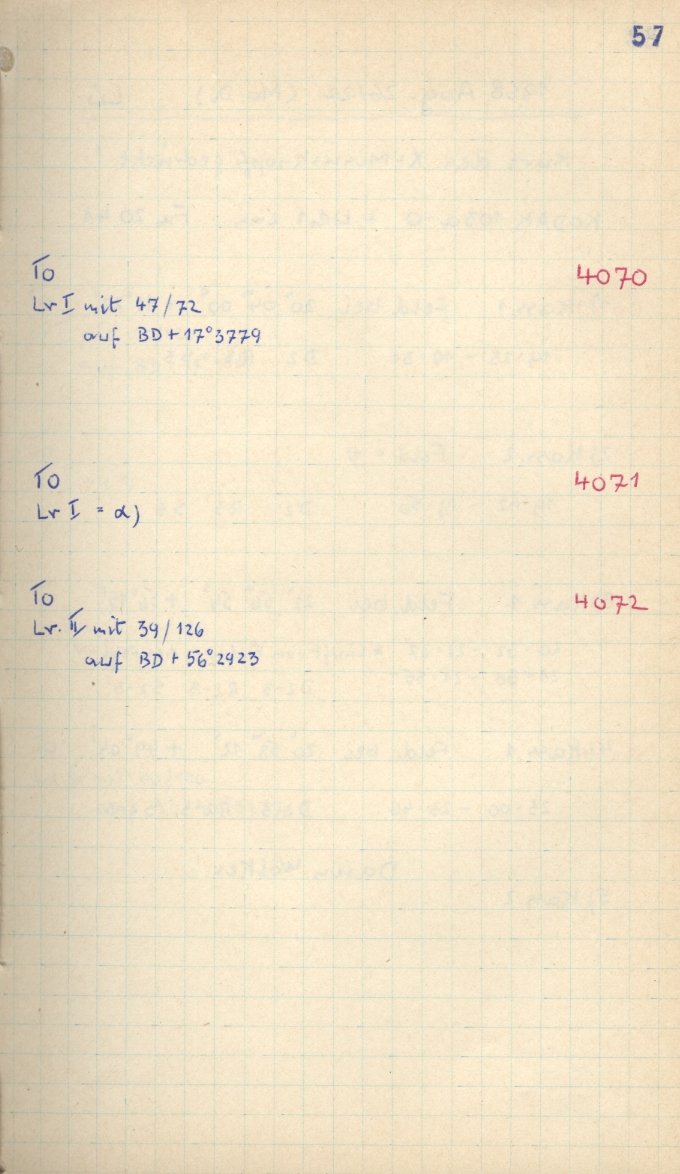 57
To 4070
Lr I mit 47/72
auf BD+17°3779
To 4071
Lr I = α)
To 4072
Lr. II mit 39/126
auf BD+56°2923